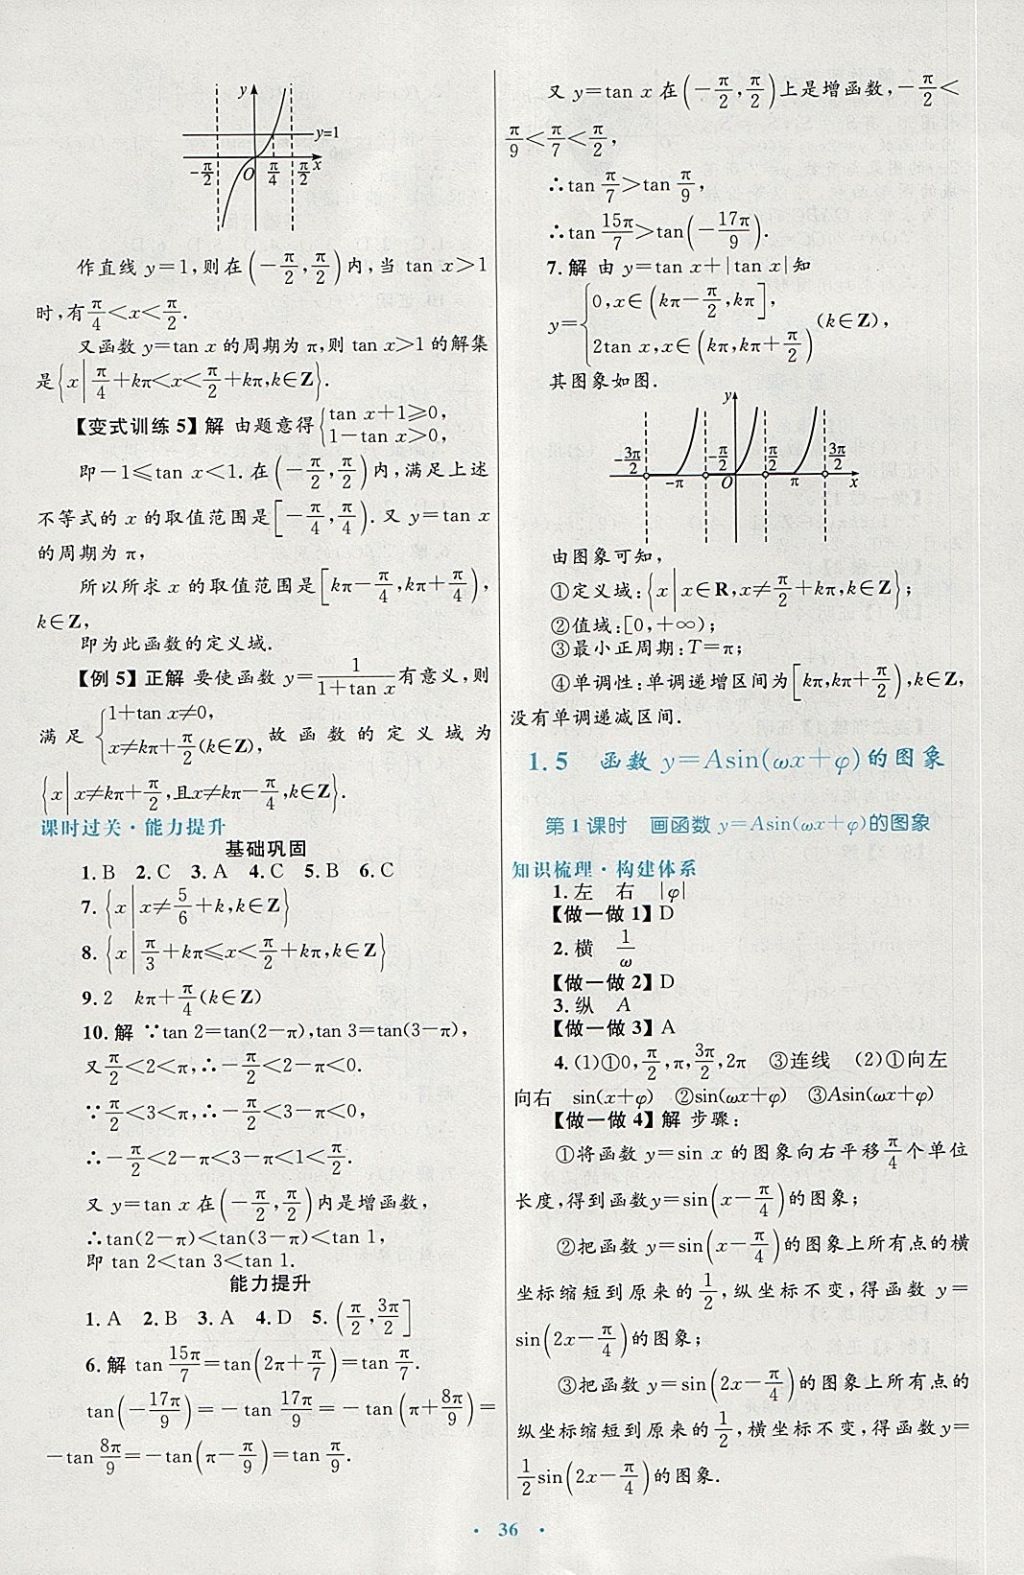 y
y=1
-π/2 O π/4 π/2 x
作直线 y=1,则在(-π/2,π/2)内,当 tan x>1
时,有π/4<x<π/2.
又函数 y=tan x 的周期为 π,则 tan x>1 的解集
是{x|π/4+kπ<x<π/2+kπ,k∈Z}.
【变式训练 5】解 由题意得{tan x+1≥0,
1-tan x>0,
即-1≤tan x<1.在(-π/2,π/2)内,满足上述
不等式的 x 的取值范围是[-π/4,π/4).又 y=tan x
的周期为 π,
所以所求 x 的取值范围是[kπ-π/4,kπ+π/4),
k∈Z,
即为此函数的定义域.
【例 5】正解 要使函数 y=1/(1+tan x)有意义,则
满足{1+tan x≠0,
x≠kπ+π/2(k∈Z), 故函数的定义域为
{x|x≠kπ+π/2,且x≠kπ-π/4,k∈Z}.
课时过关·能力提升
基础巩固
1.B 2.C 3.A 4.C 5.B 6.C
7.{x|x≠5/6+k,k∈Z}
8.{x|π/3+kπ≤x<π/2+kπ,k∈Z}
9.2 kπ+π/4(k∈Z)
10.解 ∵tan 2=tan(2-π),tan 3=tan(3-π),
又π/2<2<π,∴-π/2<2-π<0.
∵π/2<3<π,∴-π/2<3-π<0,
∴-π/2<2-π<3-π<1<π/2.
又 y=tan x 在(-π/2,π/2)内是增函数,
∴tan(2-π)<tan(3-π)<tan 1,
即 tan 2<tan 3<tan 1.
能力提升
1.A 2.B 3.A 4.D 5.(π/2,3π/2]
6.解 tan 15π/7=tan(2π+π/7)=tan π/7.
tan(-17π/9)=-tan 17π/9=-tan(π+8π/9)=
-tan 8π/9=-tan(π-π/9)=tan π/9.
又 y=tan x 在(-π/2,π/2)上是增函数,-π/2<
π/9<π/7<π/2,
∴tan π/7>tan π/9,
∴tan 15π/7>tan(-17π/9).
7.解 由 y=tan x+|tan x|知
y={0,x∈(kπ-π/2,kπ],
2tan x,x∈(kπ,kπ+π/2) (k∈Z),
其图象如图.
y
-3π/2 -π/2 π/2 3π/2
-π O π x
由图象可知,
①定义域:{x|x∈R,x≠π/2+kπ,k∈Z};
②值域:[0,+∞);
③最小正周期:T=π;
④单调性:单调递增区间为[kπ,kπ+π/2),k∈Z,
没有单调递减区间.
1.5 函数 y=Asin(ωx+φ)的图象
第 1 课时 画函数 y=Asin(ωx+φ)的图象
知识梳理·构建体系
1.左 右 |φ|
【做一做 1】D
2.横 1/ω
【做一做 2】D
3.纵 A
【做一做 3】A
4.(1)①0,π/2,π,3π/2,2π ③连线 (2)①向左
向右 sin(x+φ) ②sin(ωx+φ) ③Asin(ωx+φ)
【做一做 4】解 步骤:
①将函数 y=sin x 的图象向右平移π/4个单位
长度,得到函数y=sin(x-π/4)的图象;
②把函数 y=sin(x-π/4)的图象上所有点的横
坐标缩短到原来的1/2,纵坐标不变,得函数 y=
sin(2x-π/4)的图象;
③把函数 y=sin(2x-π/4)的图象上所有点的
纵坐标缩短到原来的1/2,横坐标不变,得函数y=
1/2sin(2x-π/4)的图象.
· 36 ·